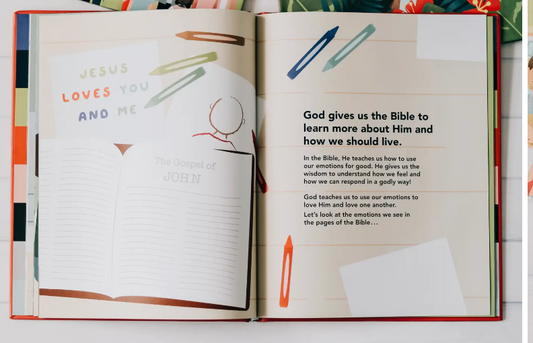 JESUS
LOVES YOU
AND ME
The Gospel of
JOHN
God gives us the Bible to
learn more about Him and
how we should live.
In the Bible, He teaches us how to use
our emotions for good. He gives us the
wisdom to understand how we feel and
how we can respond in a godly way!
God teaches us to use our emotions to
love Him and love one another.
Let's look at the emotions we see in
the pages of the Bible...